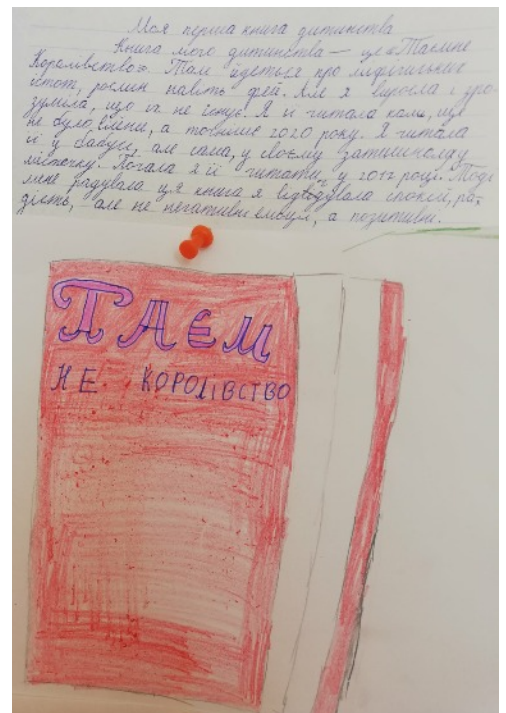 Моя перша книга дитинства
Книга мого дитинства — це «Таємне
Королівство». Там йдеться про міфічних
істот, рослин навіть фей. Але я виросла і зро-
зуміла, що їх не існує. Я її читала коли, ще
не було війни, а точніше 2020 року. Я читала
її у бабусі, але сама, у своєму затишному
місточку. Почала я її читати, у 2017 році. Тоді
мене радувала ця книга я відчувала спокій, ра-
дість, але не негативні емоції, а позитивні.
ТАЄМ
НЕ КОРОЛІВСТВО